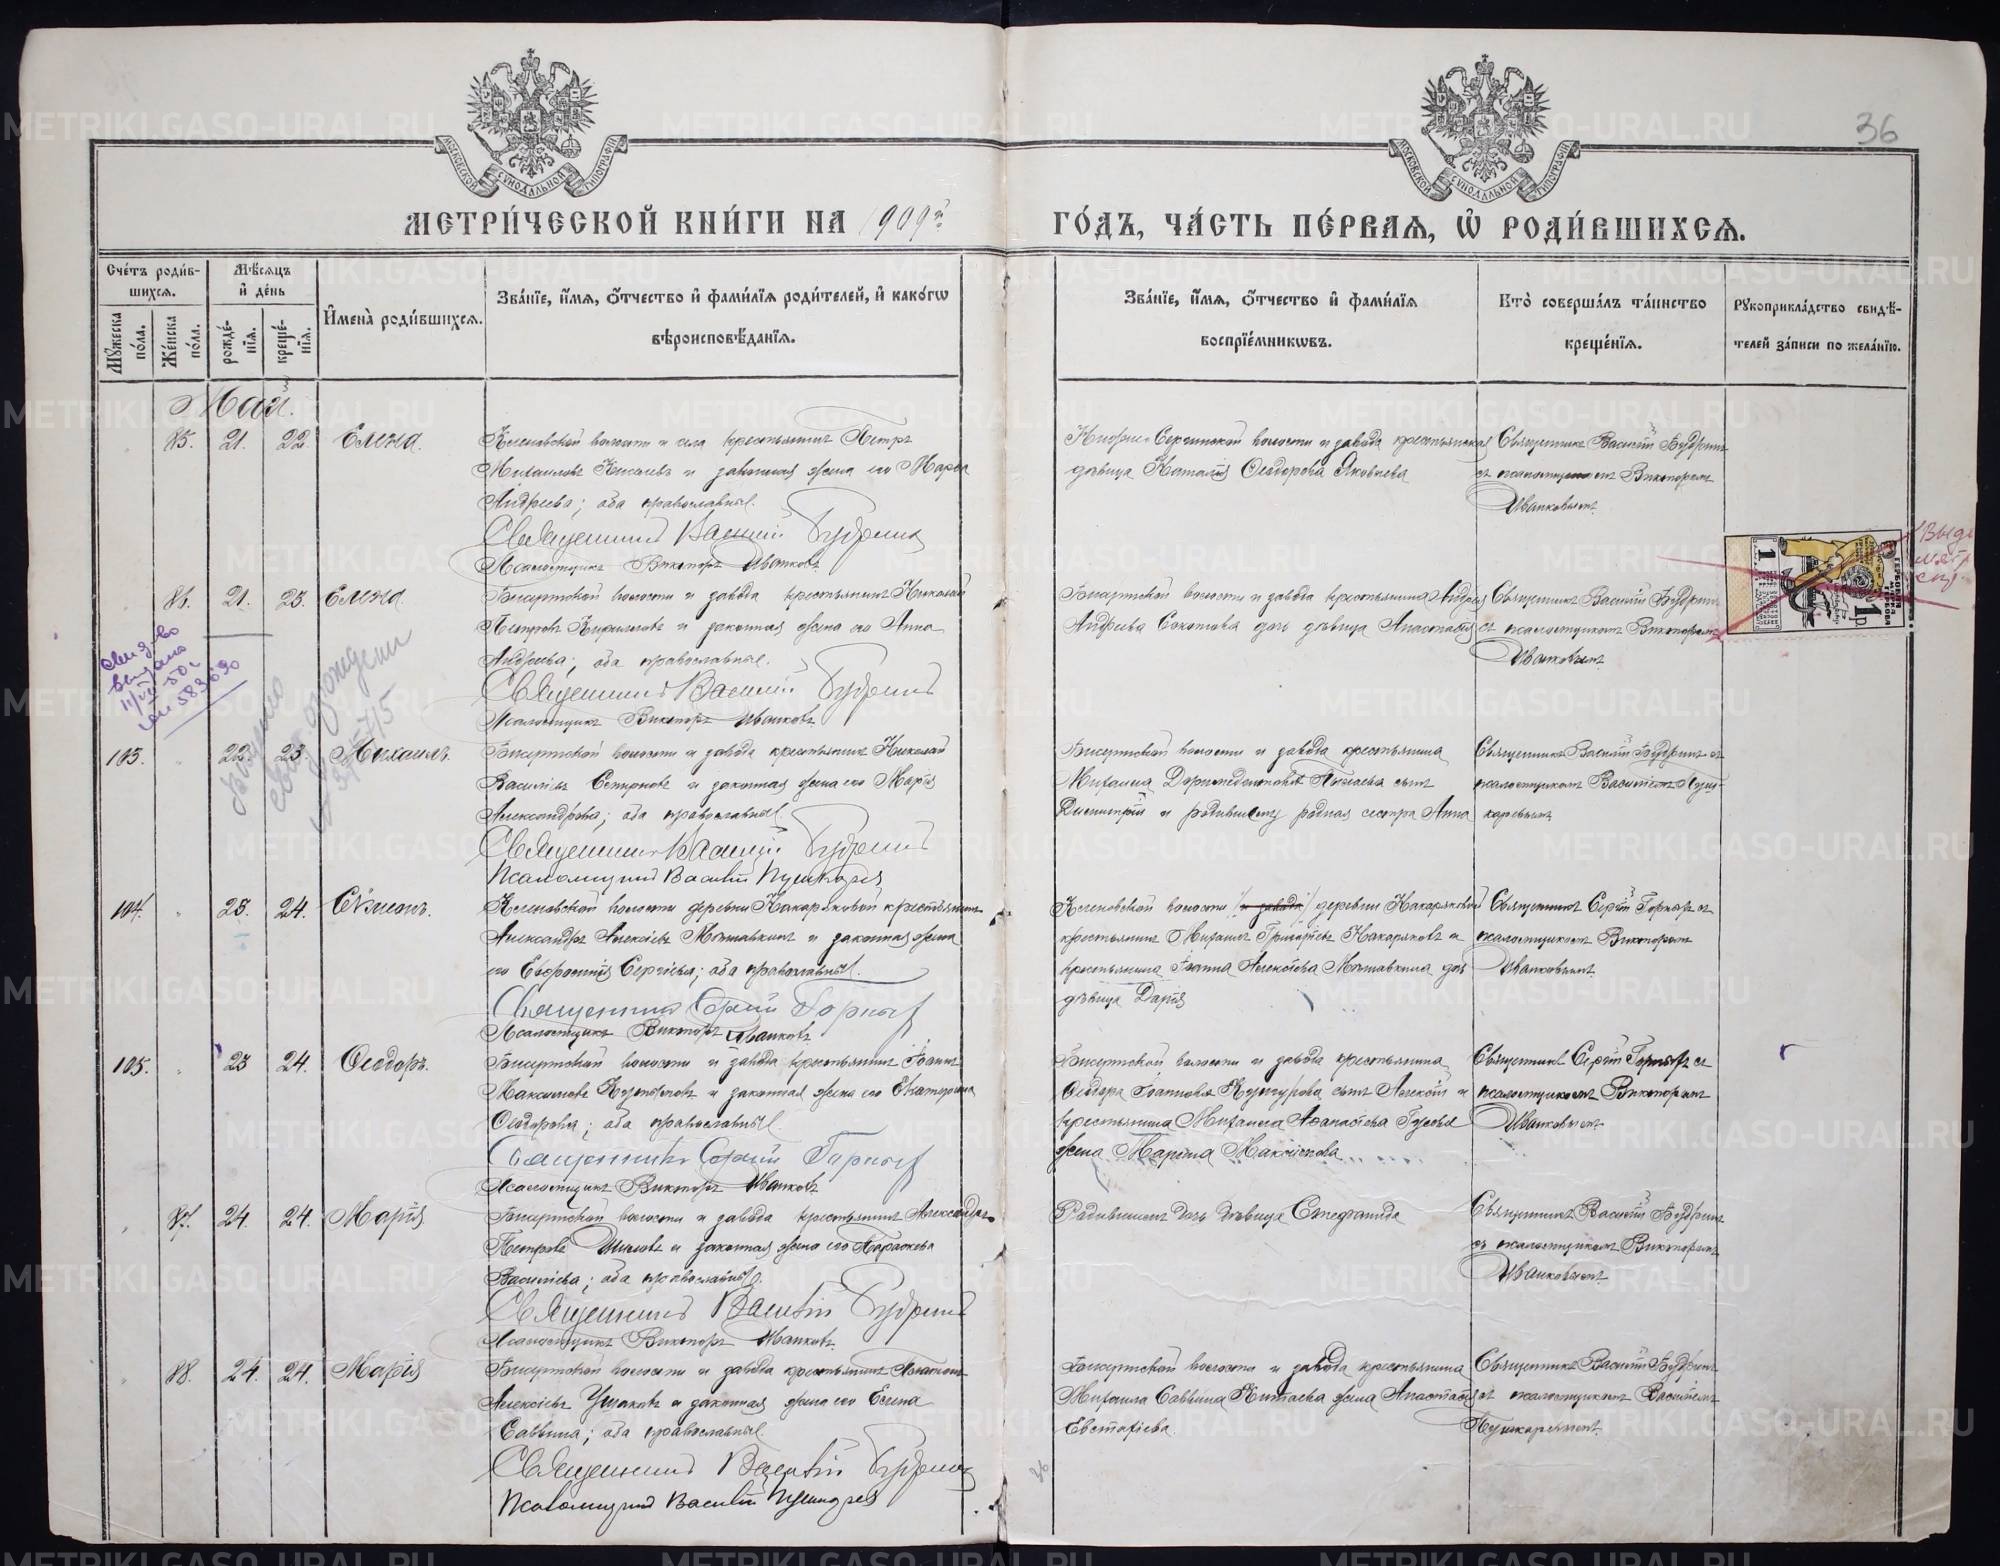 36
МОСКОВСКОЙ СѴНОДАЛЬНОЙ ТИПОГРАФІИ
МОСКОВСКОЙ СѴНОДАЛЬНОЙ ТИПОГРАФІИ
МЕТРИ́ЧЕСКОЙ КНИ́ГИ НА 1909й
ГО́ДЪ, ЧА́СТЬ ПЕ́РВАѦ, Ѽ РОДИ́ВШИХСѦ.
Сче́тъ роди́в-
шихсѧ.
Мꙋ́жеска по́ла.
Же́нска по́ла.
Мѣ́сѧцъ
и҆ де́нь
рожде́-
нїѧ.
креще́-
нїѧ.
И҆мена̀ роди́вшихсѧ.
Зва́нїе, и҆́мѧ, ѻ҆́тчество и҆ фами́лїѧ роди́телей, и҆ како́гѡ
вѣ́роисповѣ́данїѧ.
Зва́нїе, и҆́мѧ, ѻ҆́тчество и҆ фами́лїѧ
воспрїе́мникѡвъ.
Кто̀ соверша́лъ та́инство
креще́нїѧ.
Рꙋкоприкла́дство свидѣ́-
телей за́писи по жела́нїю.
Май.
85. 21. 22. Елена.
Кленовской волости и села крестьянинъ Петръ
Михаиловъ Киселевъ и законная жена его Марѳа
Андреева; оба православные.
Священникъ Василій Будринъ
Псаломщикъ Викторъ Иванковъ.
Нижне-Сергинской волости и завода крестьянская
дѣвица Наталія Ѳеодорова Яковлева
Священникъ Василій Будринъ
съ псаломщикомъ Викторомъ
Иванковымъ.
86. 21. 23. Елена.
Бисертской волости и завода крестьянинъ Николай
Петровъ Кирилловъ и законная жена его Анна
Андреева; оба православные.
Священникъ Василій Будринъ
Псаломщикъ Викторъ Иванковъ
Бисертской волости и завода крестьянина Андрея
Андреева дочь дѣвица Анастасія
Священникъ Василій Будринъ
съ псаломщикомъ Викторомъ
Иванковымъ.
103. 22. 23. Михаилъ.
Бисертской волости и завода крестьянинъ Николай
Василіевъ и законная жена его Марія
Александрова; оба православные.
Священникъ Василій Будринъ
Псаломщикъ Василій Пушкаревъ
Бисертской волости и завода крестьянина
Михаила Доримедонтова сынъ
Димитрій и родившемуся родная сестра Анна
Священникъ Василій Будринъ съ
псаломщикомъ Василіемъ Пуш-
каревымъ
104. 23. 24. Сѵмеонъ.
Кленовской волости деревни Накаряковой крестьянинъ
Александръ Алексіевъ и законная жена
его Евфросинія Сергіева; оба православные.
Священникъ Сергій Горныхъ
Псаломщикъ Викторъ Иванковъ
Кленовской волости /и завода/ деревни Накаряковой
крестьянинъ Михаилъ Григоріевъ Накаряковъ и
крестьянина Іоанна Алексіева дочь
дѣвица Дарія
Священникъ Сергій Горныхъ съ
псаломщикомъ Викторомъ
Иванковымъ
105. 23 24. Ѳеодоръ.
Бисертской волости и завода крестьянинъ Іоаннъ
Максимовъ и законная жена его Екатерина
Ѳеодорова; оба православные.
Священникъ Сергій Горныхъ
Псаломщикъ Викторъ Иванковъ
Бисертской волости и завода крестьянина
Ѳеодора Іоаннова сынъ Алексій и
крестьянина Михаила Аѳанасіева Гусева
жена Марина Максимова
Священникъ Сергій Горныхъ съ
псаломщикомъ Викторомъ
Иванковымъ
87. 24. 24. Марія
Бисертской волости и завода крестьянинъ Александръ
Петровъ Шиловъ и законная жена его Параскева
Василіева; оба православные.
Священникъ Василій Будринъ
Псаломщикъ Викторъ Иванковъ.
Родившейся дочь дѣвица Стефанида
Священникъ Василій Будринъ
съ псаломщикомъ Викторомъ
Иванковымъ
88. 24. 24. Марія
Бисертской волости и завода крестьянинъ Платонъ
Алексіевъ Ушаковъ и законная жена его Елена
Саввина; оба православные.
Священникъ Василій Будринъ
Псаломщикъ Василій Пушкаревъ
Бисертской волости и завода крестьянина
Михаила Саввина Китаева жена Анастасія
Евстафіева.
Священникъ Василій Будринъ
съ псаломщикомъ Василіемъ
Пушкаревымъ.
36
METRIKI.GASO-URAL.RU